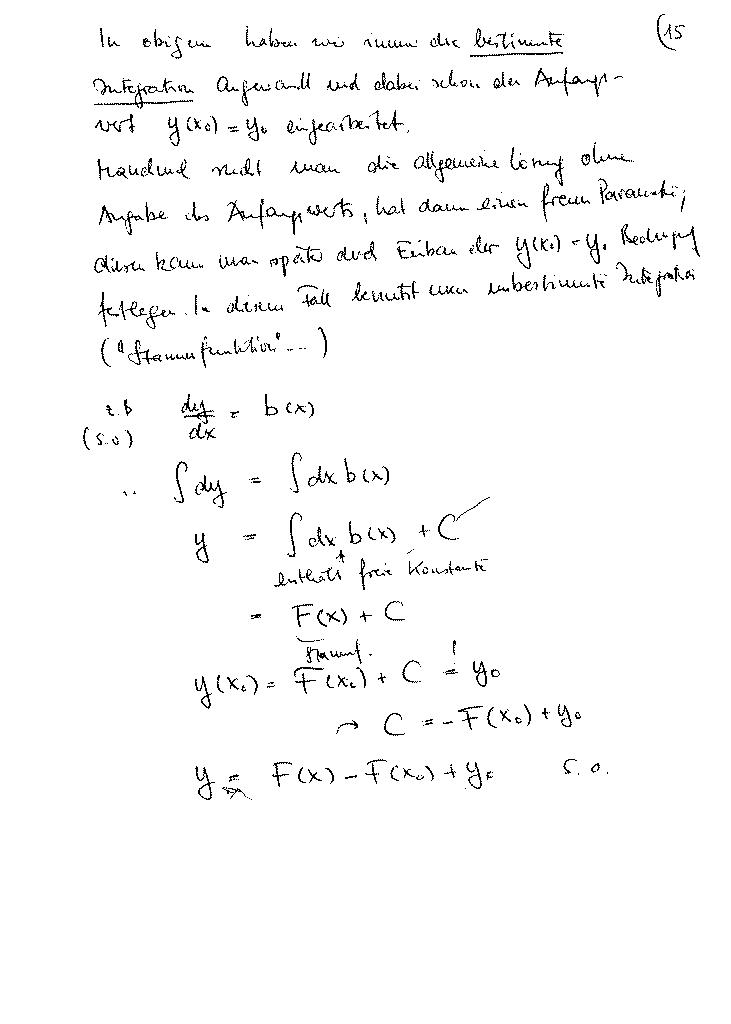 (15
In obigem haben wir immer die bestimmte
Integration angewandt und dabei schon den Anfangs-
wert y(x₀) = y₀ eingearbeitet.
Manchmal sucht man die allgemeine Lösung ohne
Angabe des Anfangswerts, hat dann einen freien Parameter,
diesen kann man später durch Einbau der y(x₀) = y₀ Bedingung
festlegen. In diesem Fall benutzt man unbestimmte Integration
("Stammfunktion"...)
z.B dy/dx = b(x)
(s.o)
∴ ∫dy = ∫dx b(x)
y = ∫dx b(x) + C
enthält freie Konstante
= F(x) + C
Stammf.
y(x₀) = F(x₀) + C = y₀
!
→ C = -F(x₀) + y₀
y = F(x) - F(x₀) + y₀ s.o.